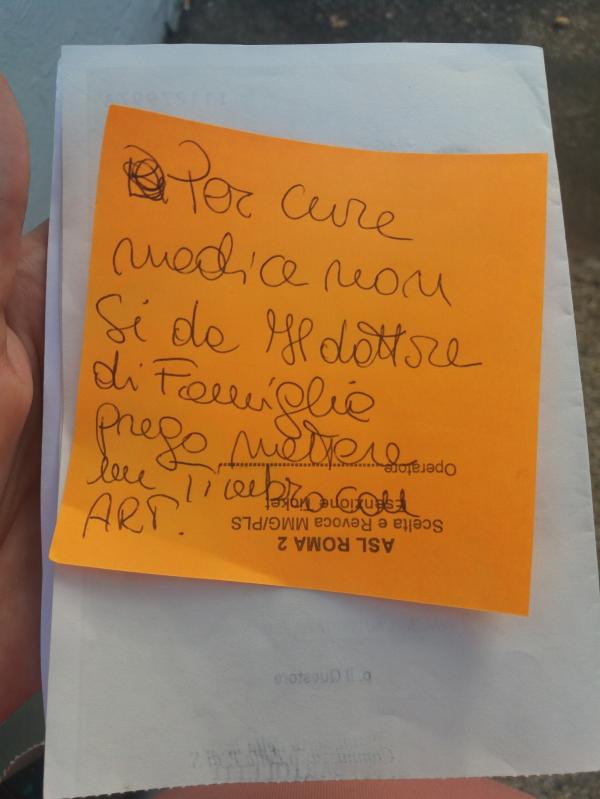 Per cure
medica non
si da Il dottore
di Famiglia
prego mettere
un Timbro con
ART.
Operatore
Esenzione Ticket
Scelta e Revoca MMG/PLS
ASL ROMA 2
p. Il Questore